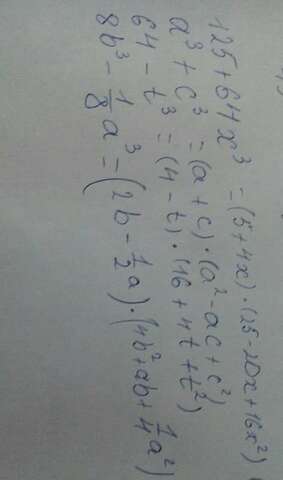 125 + 64x³ = (5 + 4x) · (25 - 20x + 16x²)
a³ + c³ = (a + c) · (a² - ac + c²)
64 - t³ = (4 - t) · (16 + 4t + t²)
8b³ - 1/8 a³ = (2b - 1/2 a) · (4b² + ab + 1/4 a²)